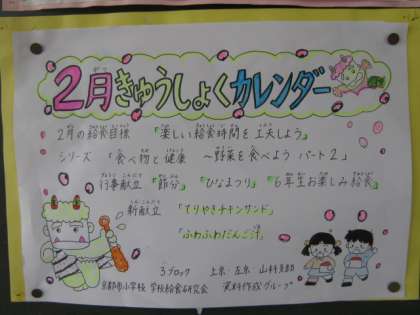 2月きゅうしょくカレンダー
2月の給食目標 「楽しい給食時間を工夫しよう」
シリーズ 「食べ物と健康 ～野菜を食べよう パート2」
行事献立 「節分」 「ひなまつり」 「6年生お楽しみ給食」
新献立 「てりやきチキンサンド」
「ふわふわだんご汁」
3ブロック 上京・左京・山科支部
京都市小学校 学校給食研究会 資料作成グループ